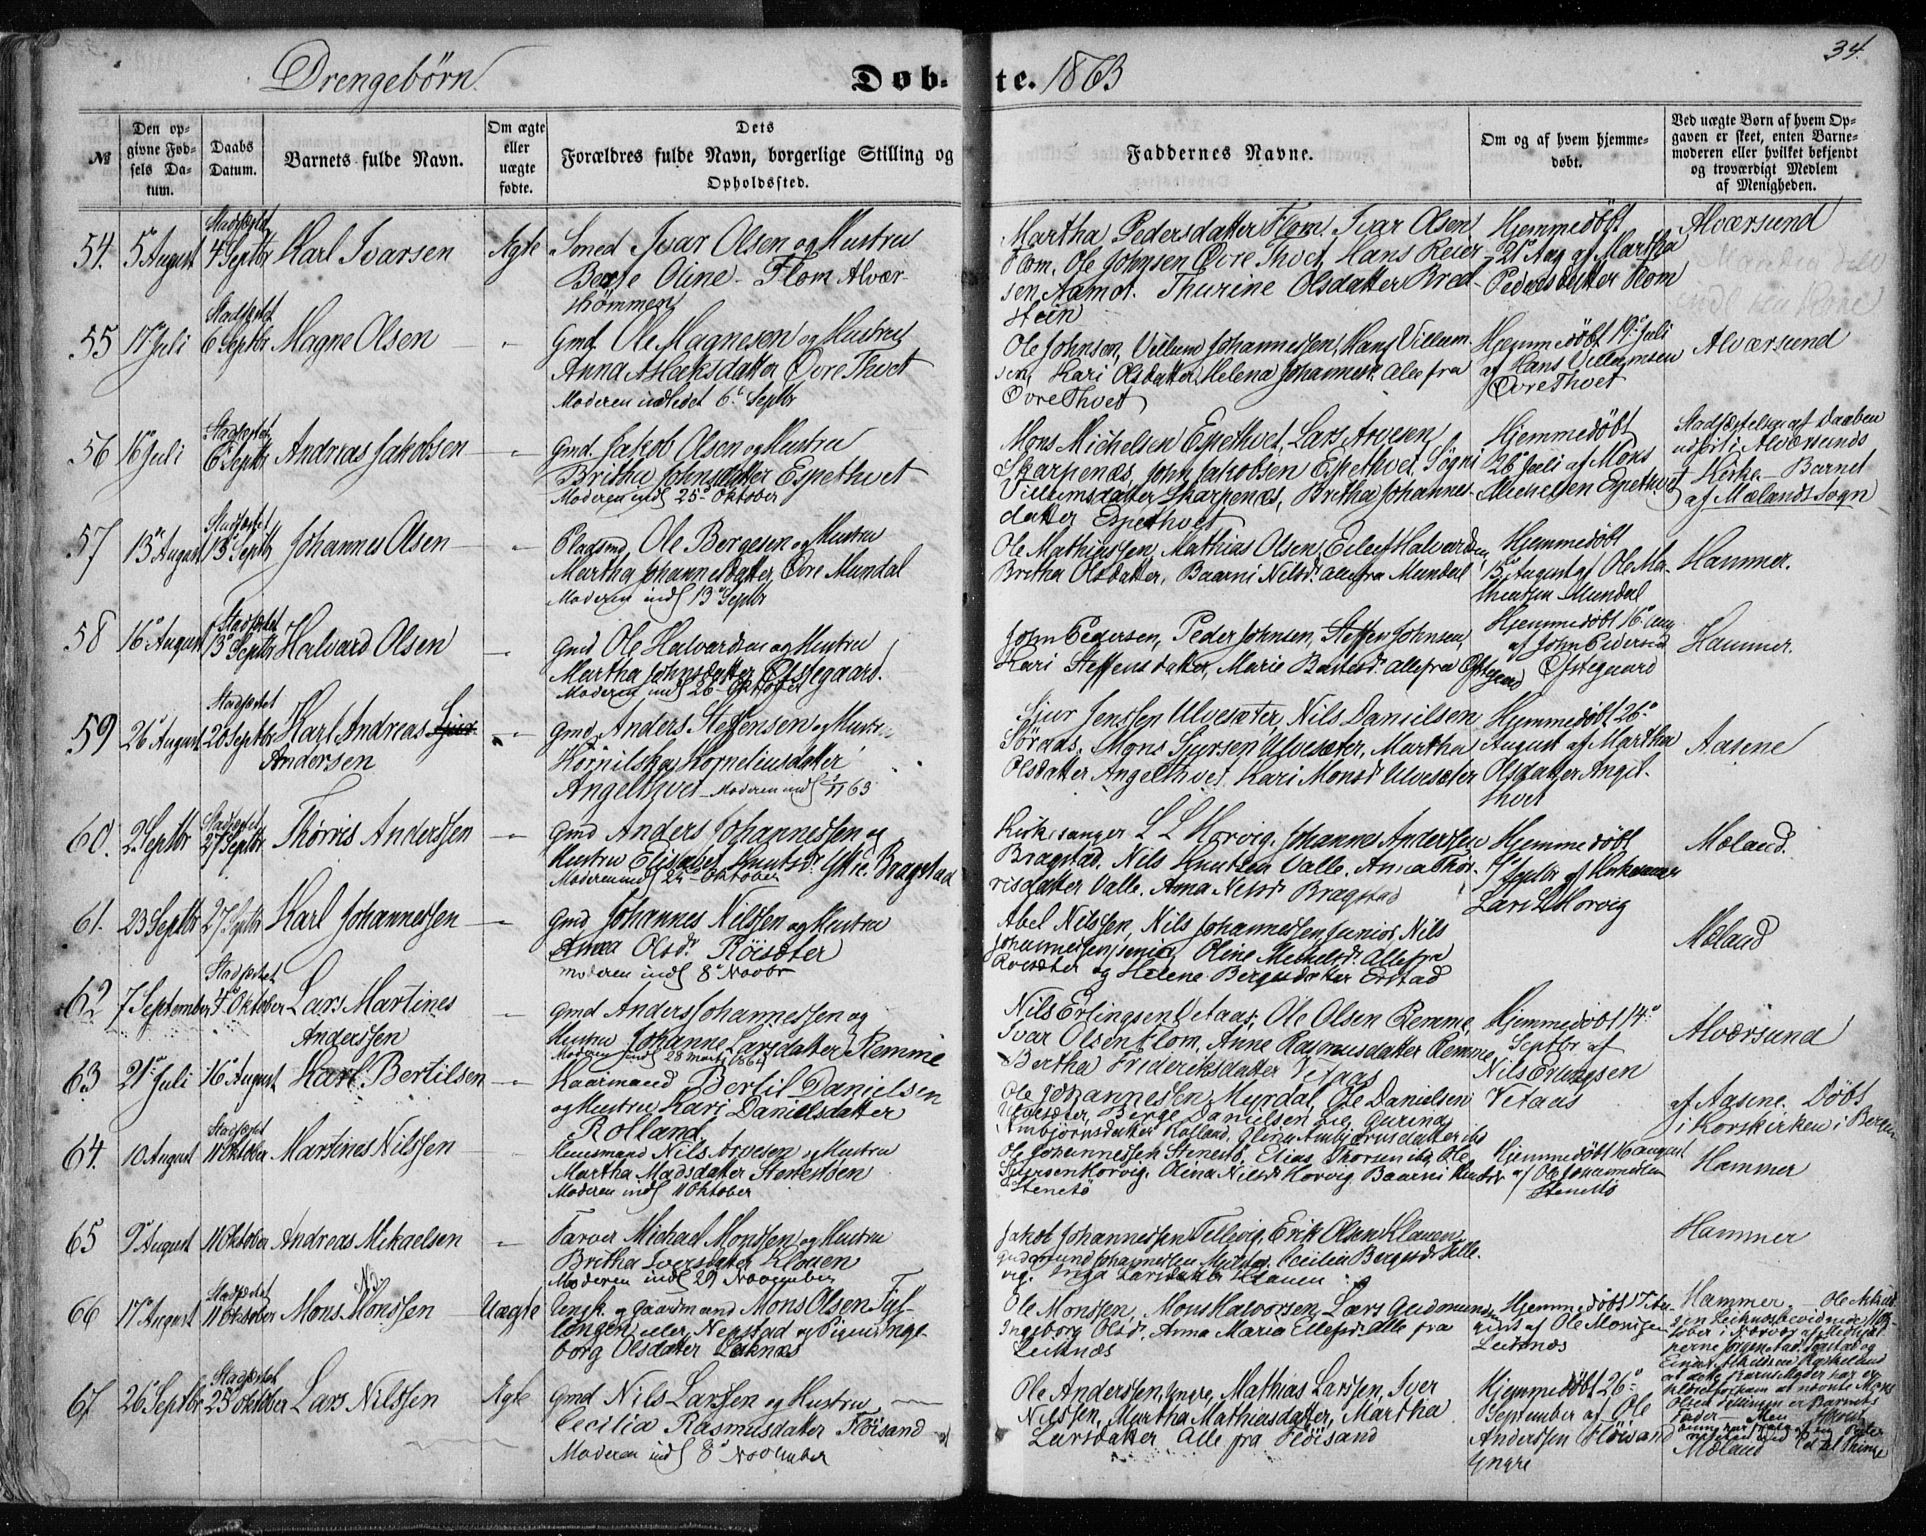 34.
Drengebørn.
Døbte. 1863
№
Den opgivne Fødsels Datum.
Daabs Datum.
Barnets fulde Navn.
Om ægte eller uægte fødte.
Dets Forældres fulde Navn, borgerlige Stilling og Opholdssted.
Faddernes Navne.
Om og af hvem hjemmedøbt.
Ved uægte Børn af hvem Opgaven er skeet, enten Barnemoderen eller hvilket bekjendt og troværdigt Medlem af Menigheden.
54. 5 August
4 Septbr
Karl Ivarsen
Ægte
Smed Ivar Olsen og Hustru
Oline Flom Alvær-
strømmen
Martha Pedersdatter Flom, Ivar Olsen
Flom, Ole Johnsen Øvre Thvet, Hans Reier-
sen Aamot. Thurine Olsdatter Bred-
stein
Hjemmedøbt
21 Aug af Martha
Pedersdatter Flom
Alværsund
55 17 Juli
Stadfæstet
6 Septbr
Magne Olsen
Gmd. Ole Magnesen og Hustru
Anna Aslaksdatter Øvre Thvet
Moderen indledet 6 Septbr
Ole Johnsen, Villum Johannessen, Hans Villum-
sen, Kari Olsdatter, Helena Johannesd. Alle fra
Øvre Thvet
Hjemmedøbt 19 Juli
af Hans Villumsen
Øvre Thvet
Alværsund
56 16 Juli
Stadfæstet
6 Septbr
Andreas Jakobsen
Gmd. Jakob Olsen og Hustru
Britha Johnsdatter Espethvet
Moderen indl 25 Oktober
Mons Michelsen Espethvet, Lars Arvesen
Skarpenæs, John Jakobsen Espethvet, Søgni
Villumsdatter Skarpenæs, Britha Johannes-
datter Espethvet
Hjemmedøbt
26 Juli af Mons
Michelsen Espethvet
Stadfæstelsen af Daaben
udført i Alværsunds
Kirke - Barnet
af Mælands Sogn
57 13 August
Stadfæstet
13 Septbr
Johannes Olsen
Pladsmd. Ole Børgesen og Hustru
Martha Johannesdatter Øvre Mundal
Moderen indl 13 Septbr
Ole Mathiassen, Mathias Olsen, Eilef Halvardsen,
Britha Olsdatter, Baarni Nilsd. Alle fra Mundal
Hjemmedøbt
15 August af Ole Ma-
thiassen Mundal
Hammer.
58 16 August
Stadfæstet
13 Septbr
Halvard Olsen
Gmd Ole Halvardsen og Hustru
Martha Johnsdatter Østegaard.
Moderen indl 26 Oktober
John Pedersen, Peder Johnsen, Steffen Johnsen,
Kari Steffensdatter, Marie alle fra Østegaard
Hjemmedøbt 16 aug
af John Pedersen
Østegaard
Hammer.
59 26 August
Stadfæstet
20 Septbr
Karl Andreas
Andersen
Gmd. Anders Steffensen og Hustru
Korneliusdatter
Angelthvet - Moderen indl 1/11 63
Sjur Jenssen Ulvesæter, Nils Danielsen
Søraas, Mons Sjursen Ulvesæter, Martha
Olsdatter Angelthvet, Kari Monsd Ulvesæter
Hjemmedøbt 26
August af Martha
Olsdatter Angel-
thvet
Aasene
60. 2 Septbr
Stadfæstet
27 Septbr
Thorris Anderssen
Gmd Anders Johannessen og
Hustru Elisabet Knutsd. Ystre Bragstad
Moderen indl 25 Oktober
Kirkesanger L L Horvig, Johannes Anderssen
Bragstad, Nils Knutsen Valle, Anna Thor-
risdatter Valle. Anna Nilsd Bragstad
Hjemmedøbt
Septbr af Kirkesanger
Lars L Horvig
Mæland.
61. 23 Septbr
27 Septbr
Karl Johannessen
Gmd Johannes Nilssen og Hustru
Anna Olsd. Röisæter
Moderen indl 8 Novbr
Abel Nilssen, Nils Johannessen junior, Nils
Johannessen senior, Oline Mekelsd. Alle fra
Roisæter og Helene Bergesdatter Erstad
Mæland
62 7 September
Stadfæstet
4 Oktober
Lars Martines
Anderssen
Gmd Anders Johannessen og
Hustru Johanne Larsdatter Remme
Moderen indl 28 Marts 1864
Nils Erlingsen Vetaas, Ole Olsen Remme,
Ivar Olsen Flom, Anne Rasmusdatter Remme
Bertha Frederiksdatter Vetaas
Hjemmedøbt 14
Septbr af
Nils Erlingsen
Vetaas
Alværsund
63 21 Juli
16 August
Karl Bertilsen
Huusmand Bertil Danielsen
og Hustru Kari Danielsdatter
Rolland
Ole Johannessen Myrdal, Ole Danielsen
Ulvesæter, Berge Danielsen Guring
Ambjørnsdatter Rolland, Oline Ambjørnsdatter ibd
af Aasene. Døbt
i Korskirken i Bergen
64. 10 August
Stadfæstet
11 Oktober
Martines Nilssen
Huusmand Nils Arvesen og Hustru
Martha Madsdatter
Moderen indl 11 Oktober
Ole Johannessen Stenestø, Elias Thorsen ibd, Ole
Horvig, Olina Nilsd Horvig Baarni
Stenestø
Hjemmedøbt 16 august
af Ole Johannessen
Stenestø
Hammer
65 9 August
11 Oktober
Andreas Mikaelsen
Farver Michael Monssen og Hustru
Britha Iversdatter Klauen
Moderen indl 29 November
Jakob Johannessen Tellevig, Erik Olsen Klauen,
Gudmund Johannessen Cecilia Bergesd Telle-
vig. Inga Larsdatter Klauen
Hammer
66 17 August
Stadfæstet
11 Oktober
Mons Monssen
Uægte
Ungk. og Gaardmand Mons Olsen
eller Nepstad og Pigen Inge-
borg Olsdatter Leiknæs
Ole Monssen, Mons Halvorsen, Lars Gudmundsen
Ingeborg Olsd. Anna Maria Ellefsd. Alle fra
Leiknæs
Hjemmedøbt 17 Au-
gust af Ole Monssen
Leiknæs
Hammer
67 26 Septbr
Stadfæstet
25 Oktober
Lars Nilssen
Ægte
Gmd Nils Larssen og Hustru
Cecilia Rasmusdatter Fløisand
Moderen indl 8 November
Ole Anderssen Yngre, Mathias Larssen, Iver
Nilssen, Martha Mathiasdatter, Martha
Larsdatter Alle fra Fløisand
Hjemmedøbt 26
September af Ole
Anderssen Fløisand
Yngre
Mæland